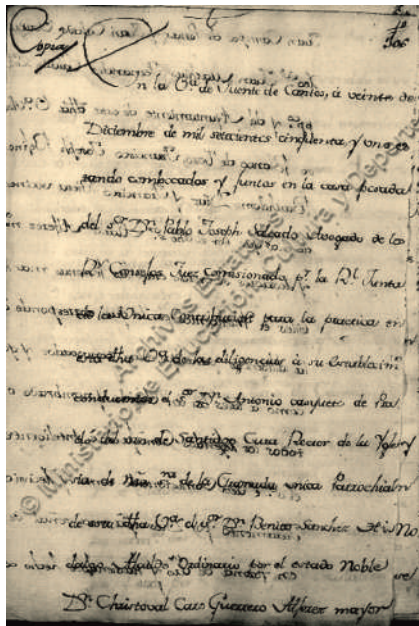 Copia
En la Va. de Fuente de Cantos, à veinte de
Diciembre de mil setecientos cinquenta, y uno es
tando combocados y juntos en la casa posada
del Sor. Dn. Pablo Joseph Salzedo Avogado de los
Rs. Consejos, Juez Comisionado pr. la Rl. Junta
de la Unica Contribucion para la practica en
esta dha Va. de las diligencias à su establecim
conducentes el Sor. Dn. Antonio
del orn. de Santiago Cura Rector de la Yglesia
de Nra. Sra. de la Granada unica Parrochial
de esta dha Va. el Sor. Dn. Benito Sanchez
dalgo Alcalde Ordinario por el estado Noble
Dn. Christoval Caro Guerrero Alferez mayor
© Ministerio de Educación, Cultura y Deporte
Archivos Estatales